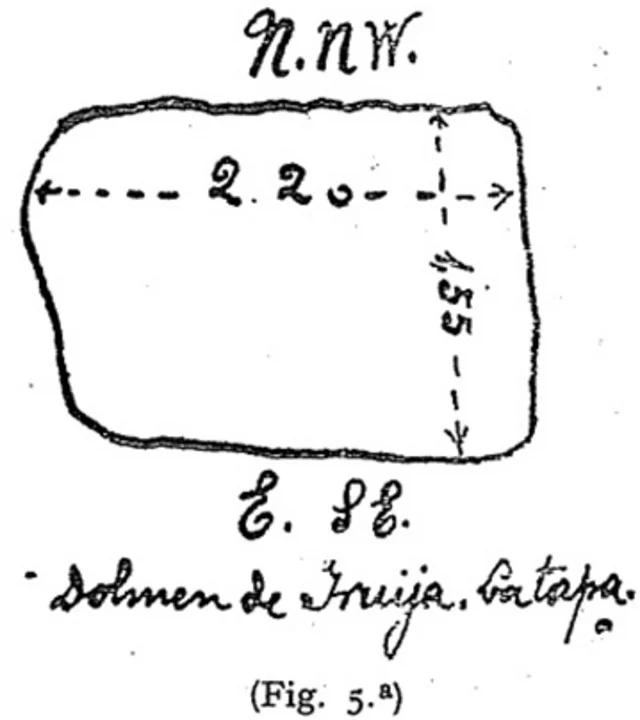 N.NW.
2.20
1,55
E. SE.
Dolmen de Fruija. La tapa.
(Fig. 5.ª)